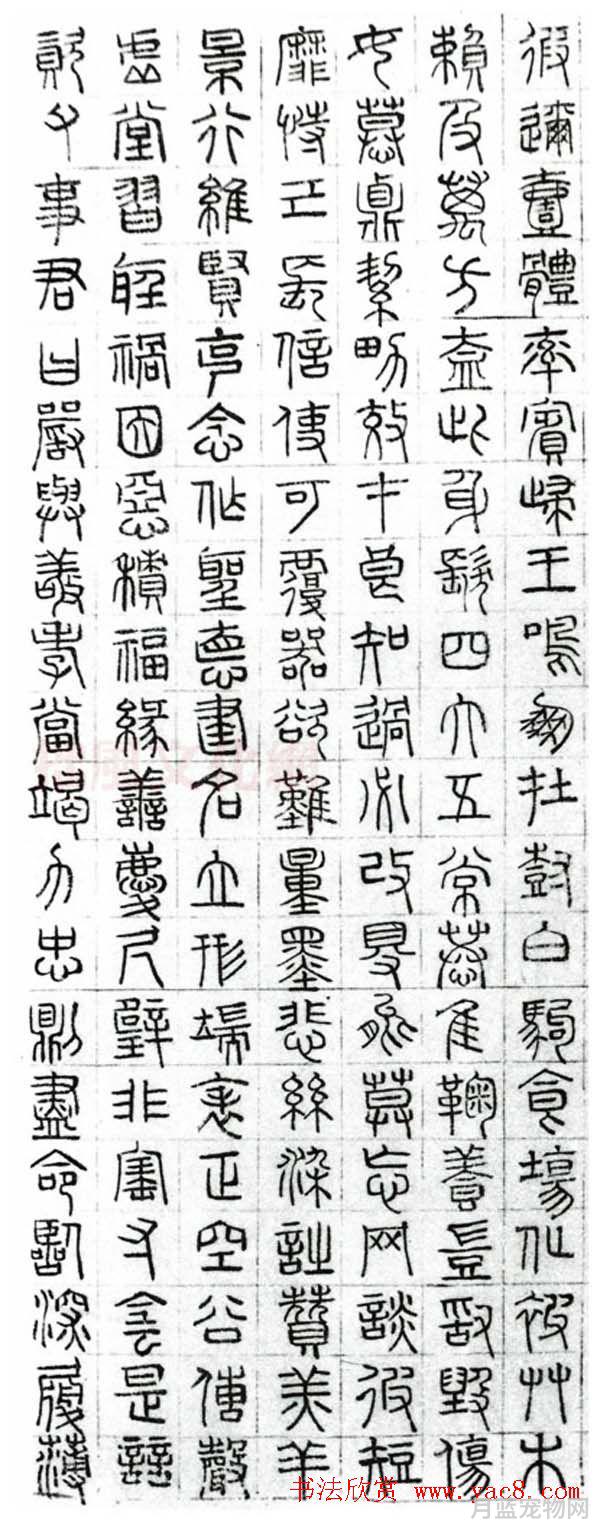 遐邇壹體率賓歸王鳴鳳在樹白駒食場化被草木
賴及萬方蓋此身髮四大五常恭惟鞠養豈敢毀傷
女慕貞絜男效才良知過必改得能莫忘罔談彼短
靡恃己長信使可覆器欲難量墨悲絲染詩贊羔羊
景行維賢克念作聖德建名立形端表正空谷傳聲
虛堂習聽禍因惡積福緣善慶尺璧非寶寸陰是競
資父事君曰嚴與敬孝當竭力忠則盡命臨深履薄
书法欣赏 www.yac8.com
月蓝宠物网